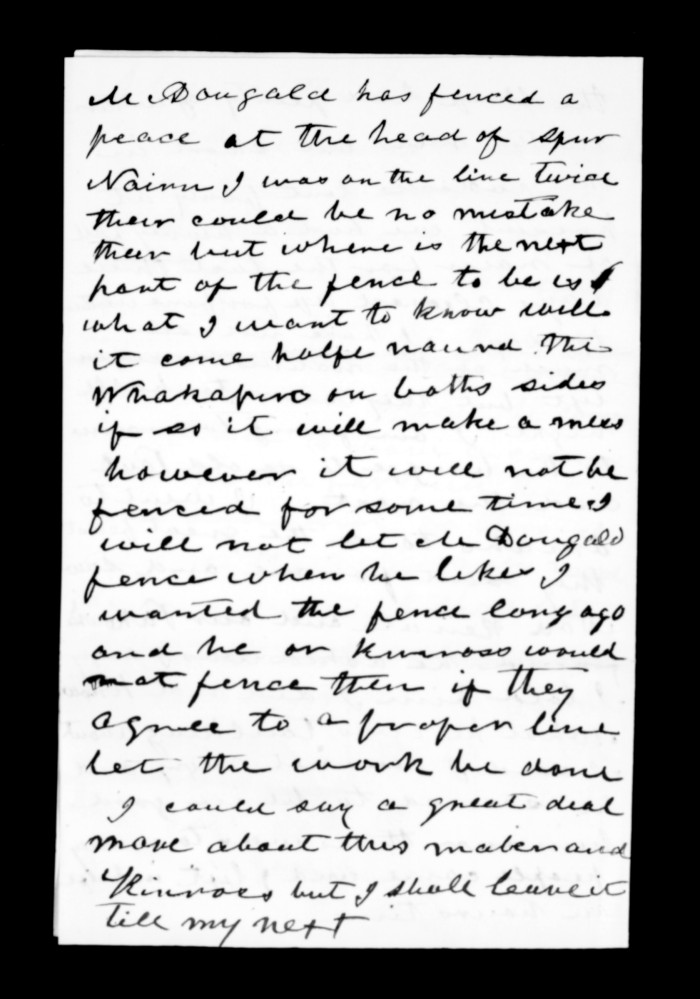 McDougald has fenced a
peace at the head of spur
Nairn I was on the line twice
their could be no mistake
their but where is the next
part of the fence to be is
what I want to know will
it come halfe naurd the
Whakapiro on boths sides
if so it will make a mess
however it will not be
fenced for some time I
will not let McDougald
fence when he likes I
wanted the fence long ago
and he or Kinross would
not fence then if they
agree to a proper line
let the work be done
I could say a great deal
more about this mater and
Kinross but I shall leave it
till my next